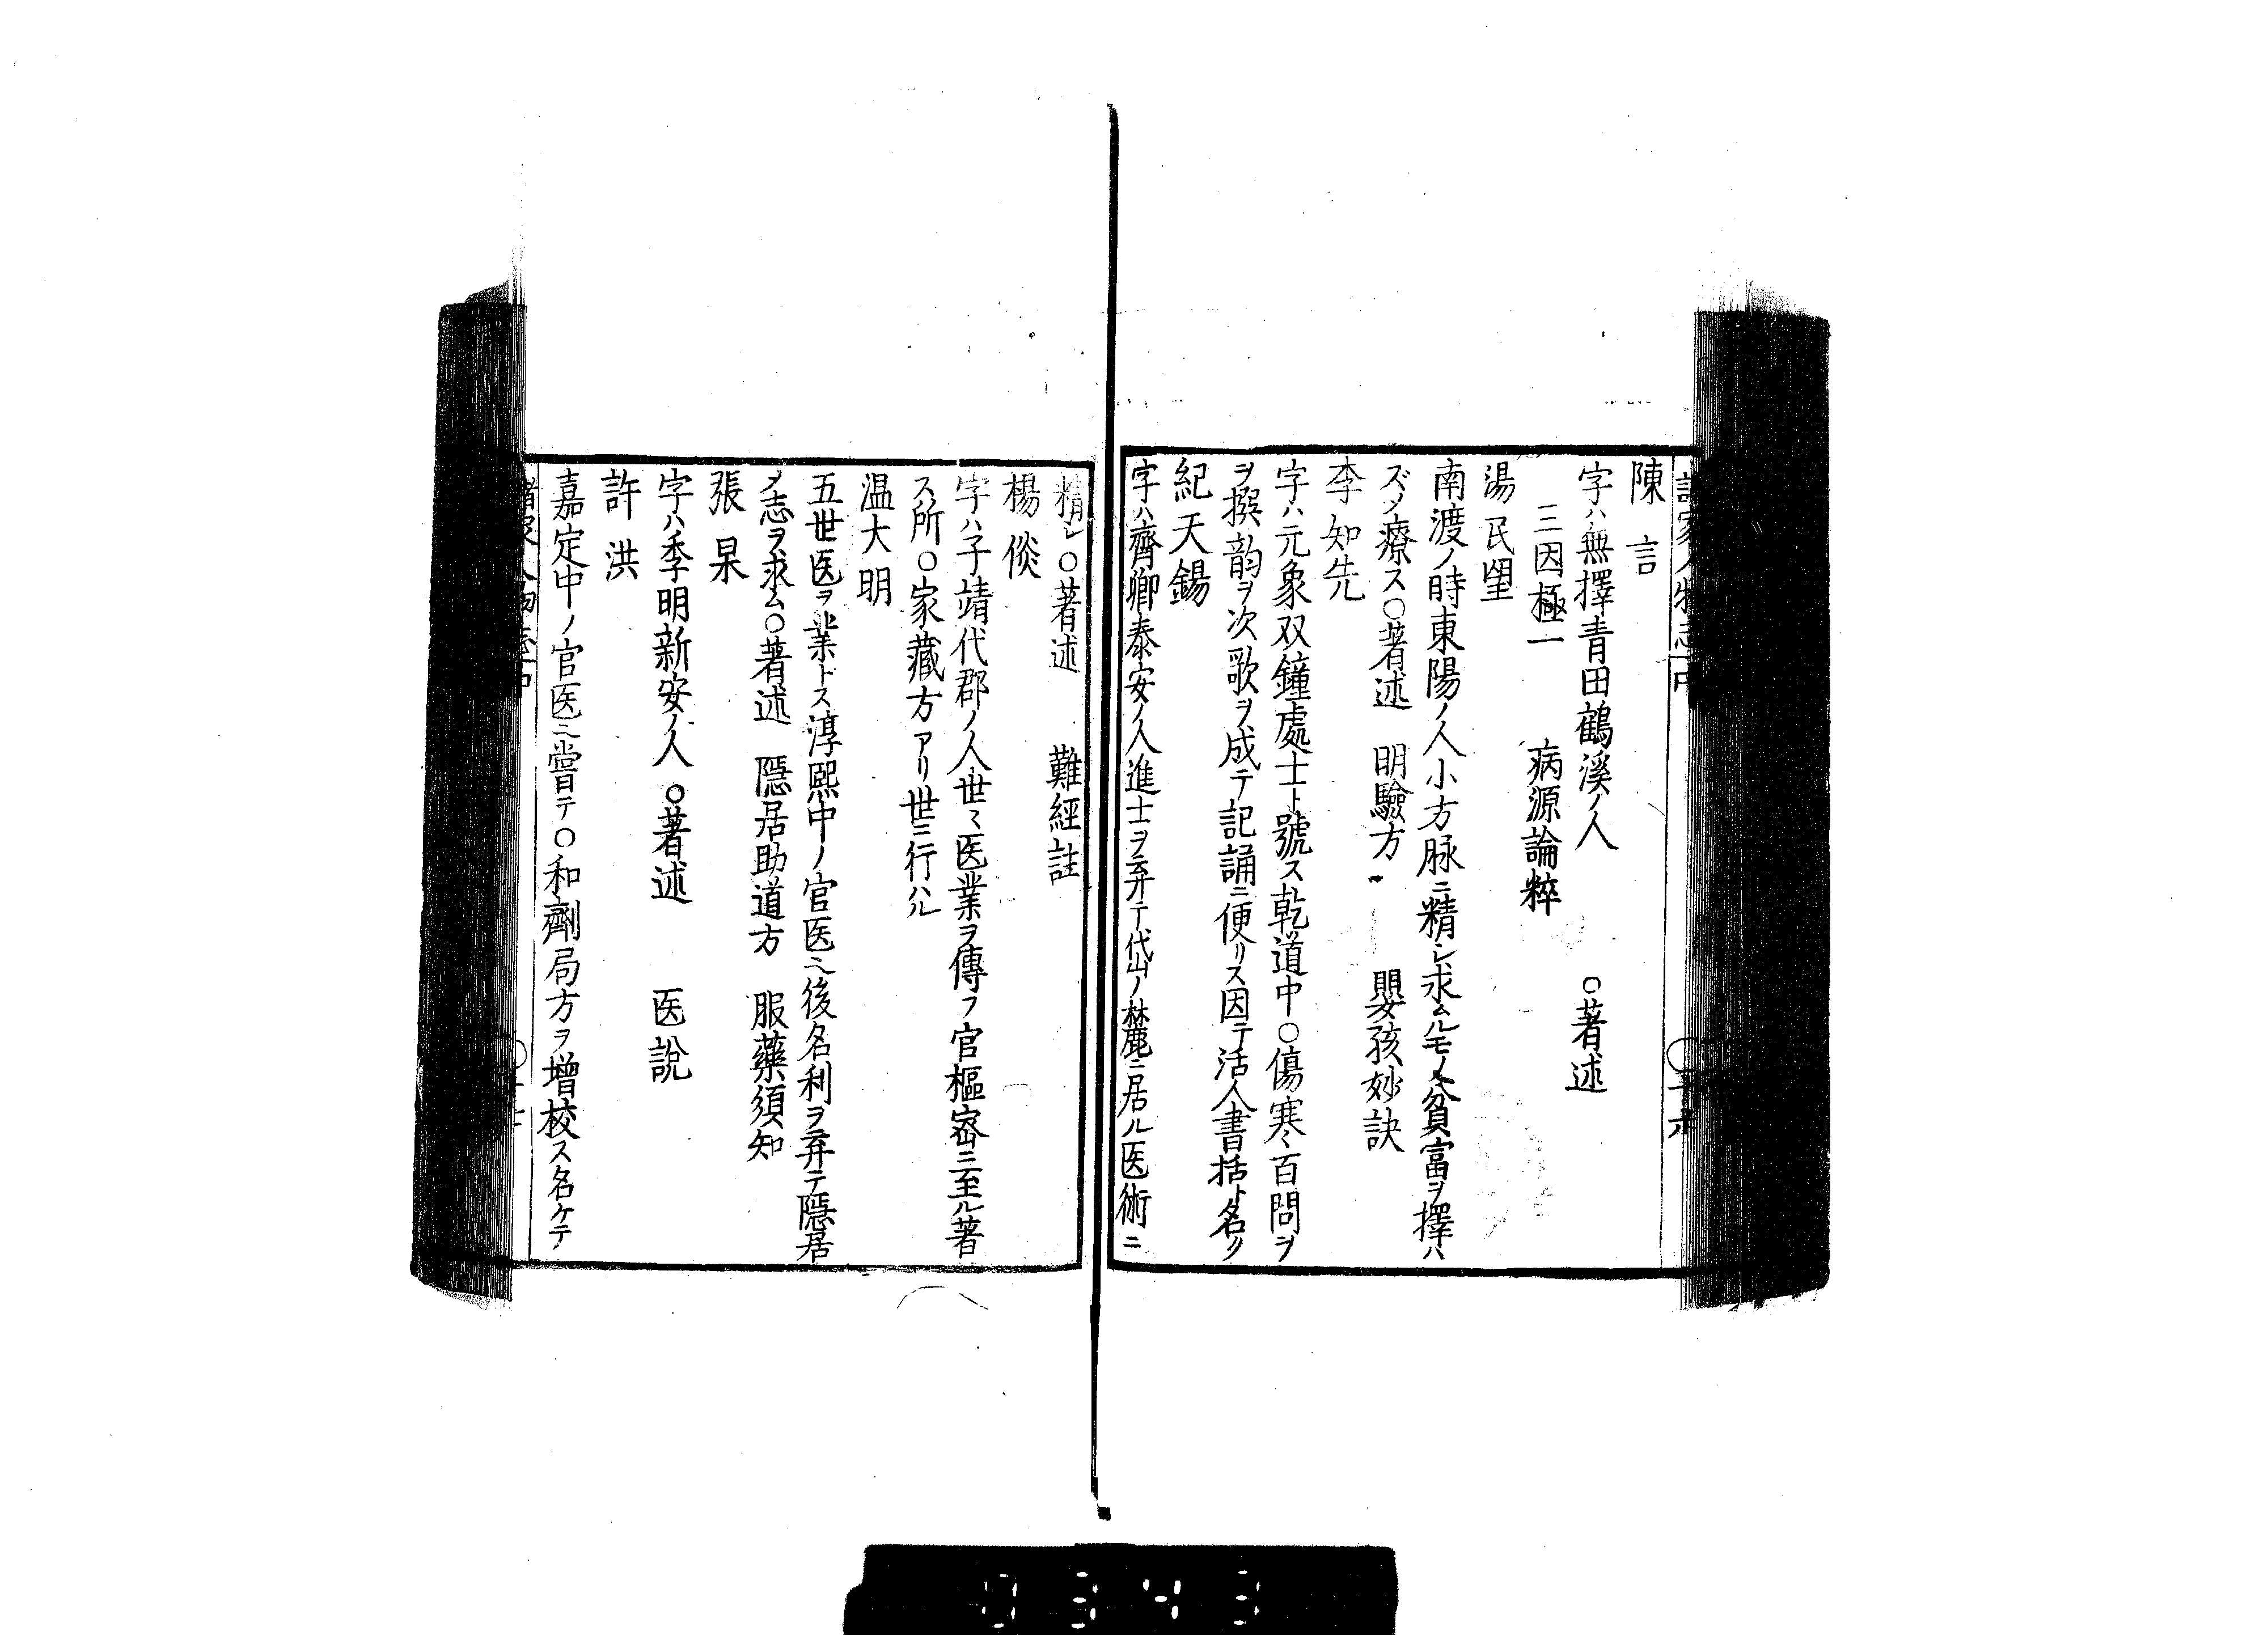 陳言
字ハ無擇青田鶴溪ノ人　○著述
三因極一　病源論粹
湯民望
南渡ノ時東陽ノ人小方脉ニ精シ求ムルモノ貧富ヲ擇ハ
ズメ療ス○著述　明驗方　嬰孩妙訣
李知先
字ハ元象双鐘處士ト號ス乾道中○傷寒百問ヲ
ヲ撰韵ヲ次歌ヲ成テ記誦ニ便リス因テ活人書括ト名ク
紀天錫
字ハ齊卿泰安ノ人進士ヲ弃テ岱ノ麓ニ居ル医術ニ
精シ○著述　難經註
楊倓
字ハ子靖代郡ノ人世々医業ヲ傳フ官樞密ニ至ル著
ス所○家藏方アリ世ニ行ハル
温大明
五世医ヲ業トス淳熙中ノ官医ニ後名利ヲ弃テ隱居
メ志ヲ求ム○著述　隱居助道方　服藥須知
張杲
字ハ季明新安ノ人○著述　医說
許洪
嘉定中ノ官医ニ嘗テ○和劑局方ヲ増校ス名ケテ
0343